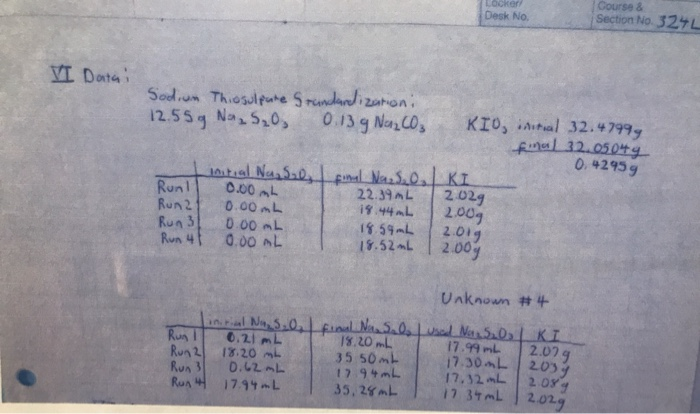 Locker/ Course &
Desk No. Section No. 324L
VI Data:
Sodium Thiosulfate Standardization:
12.55g Na₂S₂O₃ 0.13g Na₂CO₃ KIO₃ initial 32.4799g
final 32.0504g
0.4295g
initial Na₂S₂O₃ final Na₂S₂O₃ KI
Run 1 0.00 mL 22.39 mL 2.02g
Run 2 0.00 mL 18.44 mL 2.00g
Run 3 0.00 mL 18.59 mL 2.01g
Run 4 0.00 mL 18.52 mL 2.00g
Unknown #4
initial Na₂S₂O₃ final Na₂S₂O₃ used Na₂S₂O₃ KI
Run 1 0.21 mL 18.20 mL 17.99 mL 2.07g
Run 2 18.20 mL 35.50 mL 17.30 mL 2.03g
Run 3 0.62 mL 17.94 mL 17.32 mL 2.08g
Run 4 17.94 mL 35.28 mL 17.34 mL 2.02g